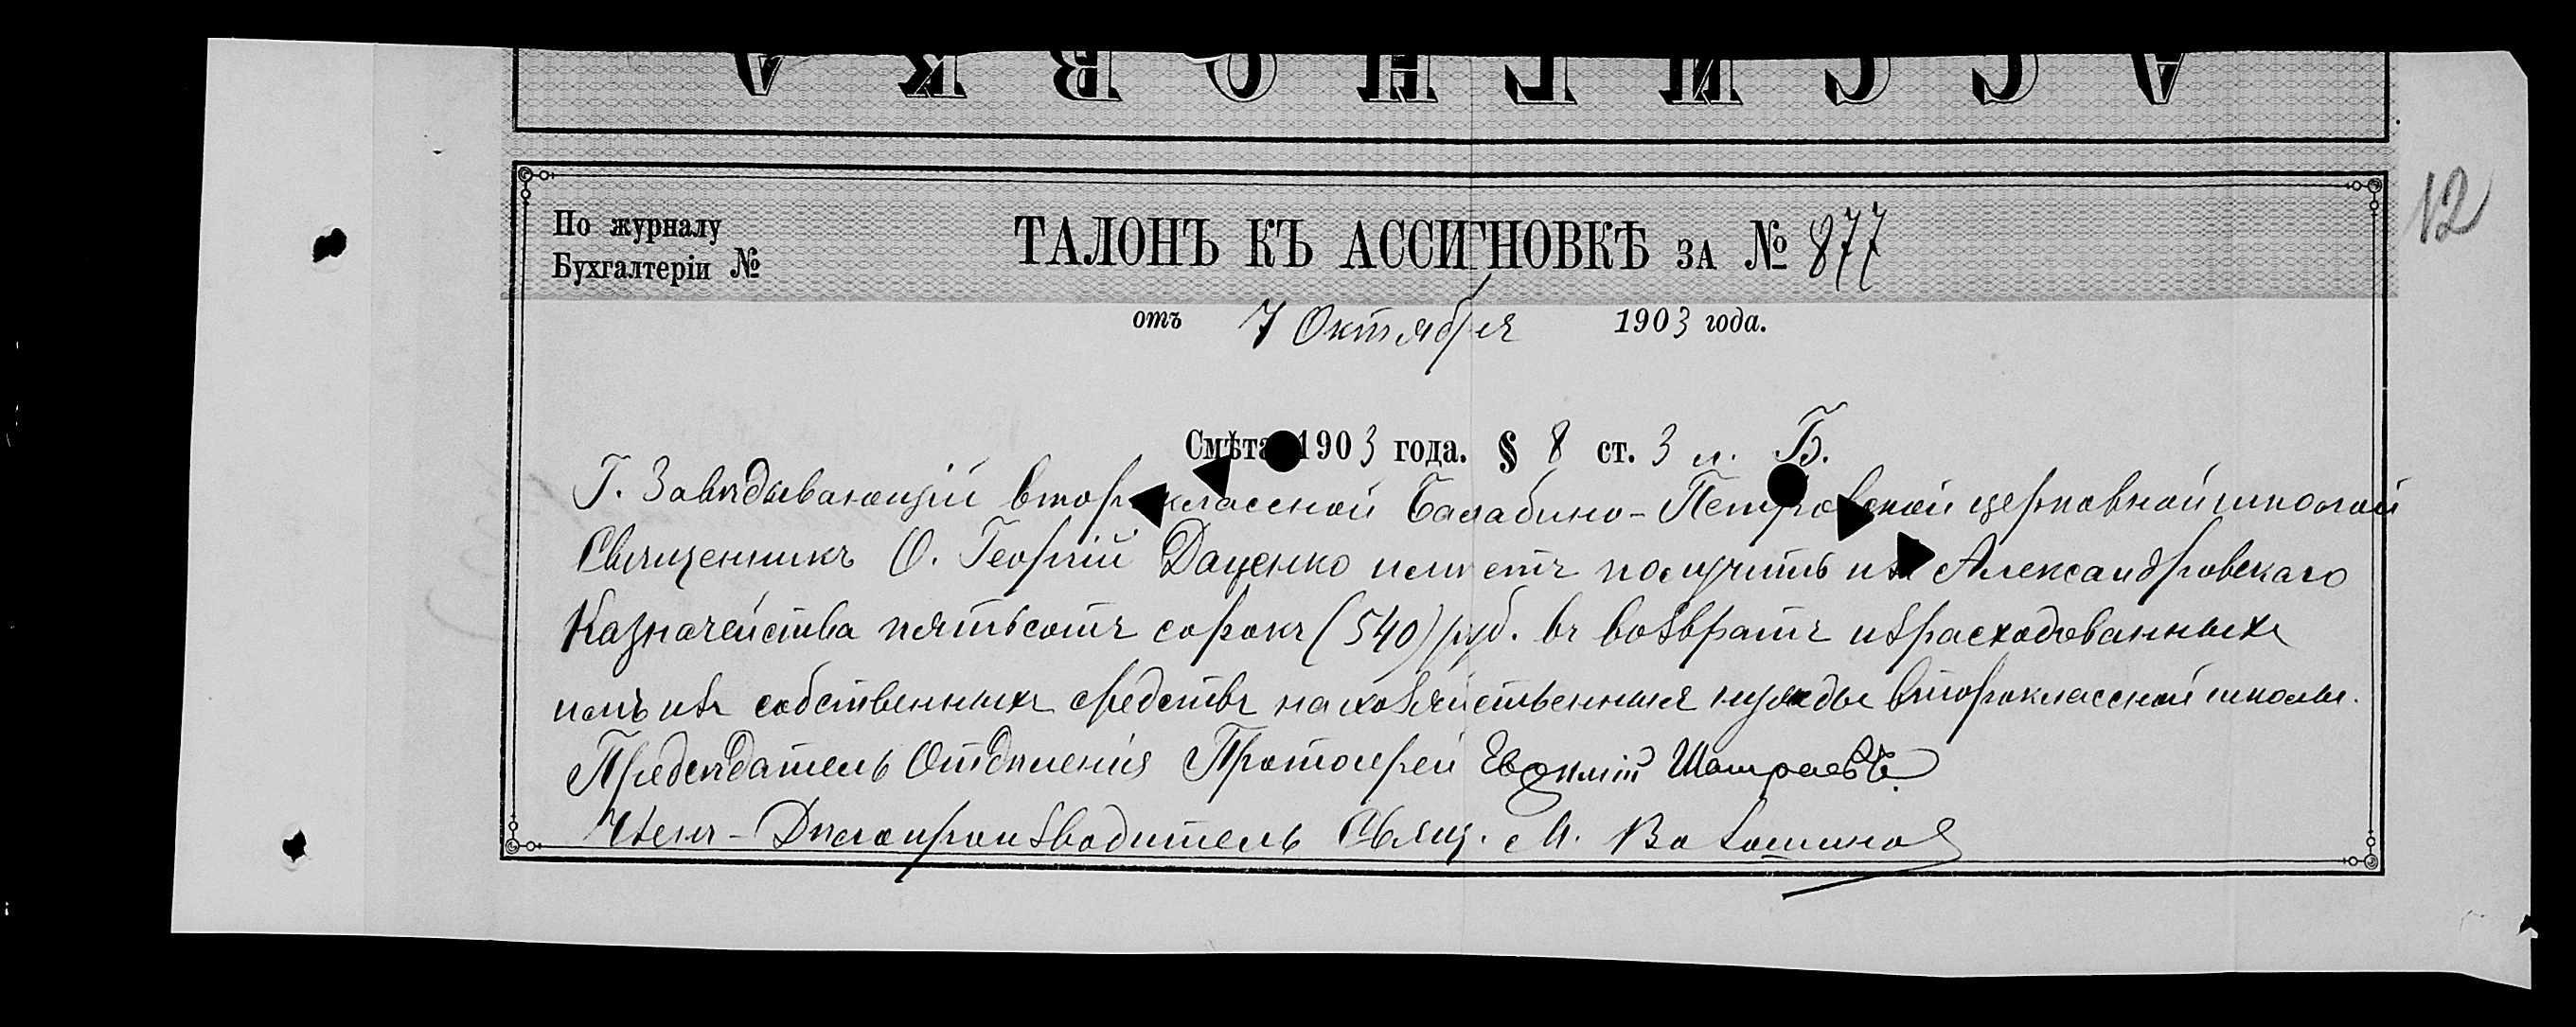 АССИГНОВКА
12
По журналу
Бухгалтеріи №
ТАЛОНЪ КЪ АССИГНОВКѢ ЗА № 877
отъ 7 Октября 1903 года.
Смѣта 1903 года. § 8 ст. 3 п. Б.
Г. Завѣдывающій второклассной Балабино-Петровской церковной школой
Священникъ О. Георгій Даценко имѣетъ получить изъ Александровскаго
Казначейства пятьсотъ сорокъ (540) руб. въ возвратъ израсходованныхъ
имъ изъ собственныхъ средствъ на хозяйственныя нужды второклассной школы.
Предсѣдатель Отдѣленія Протоіерей Евѳимій
Членъ-Дѣлопроизводитель Свящ. М.